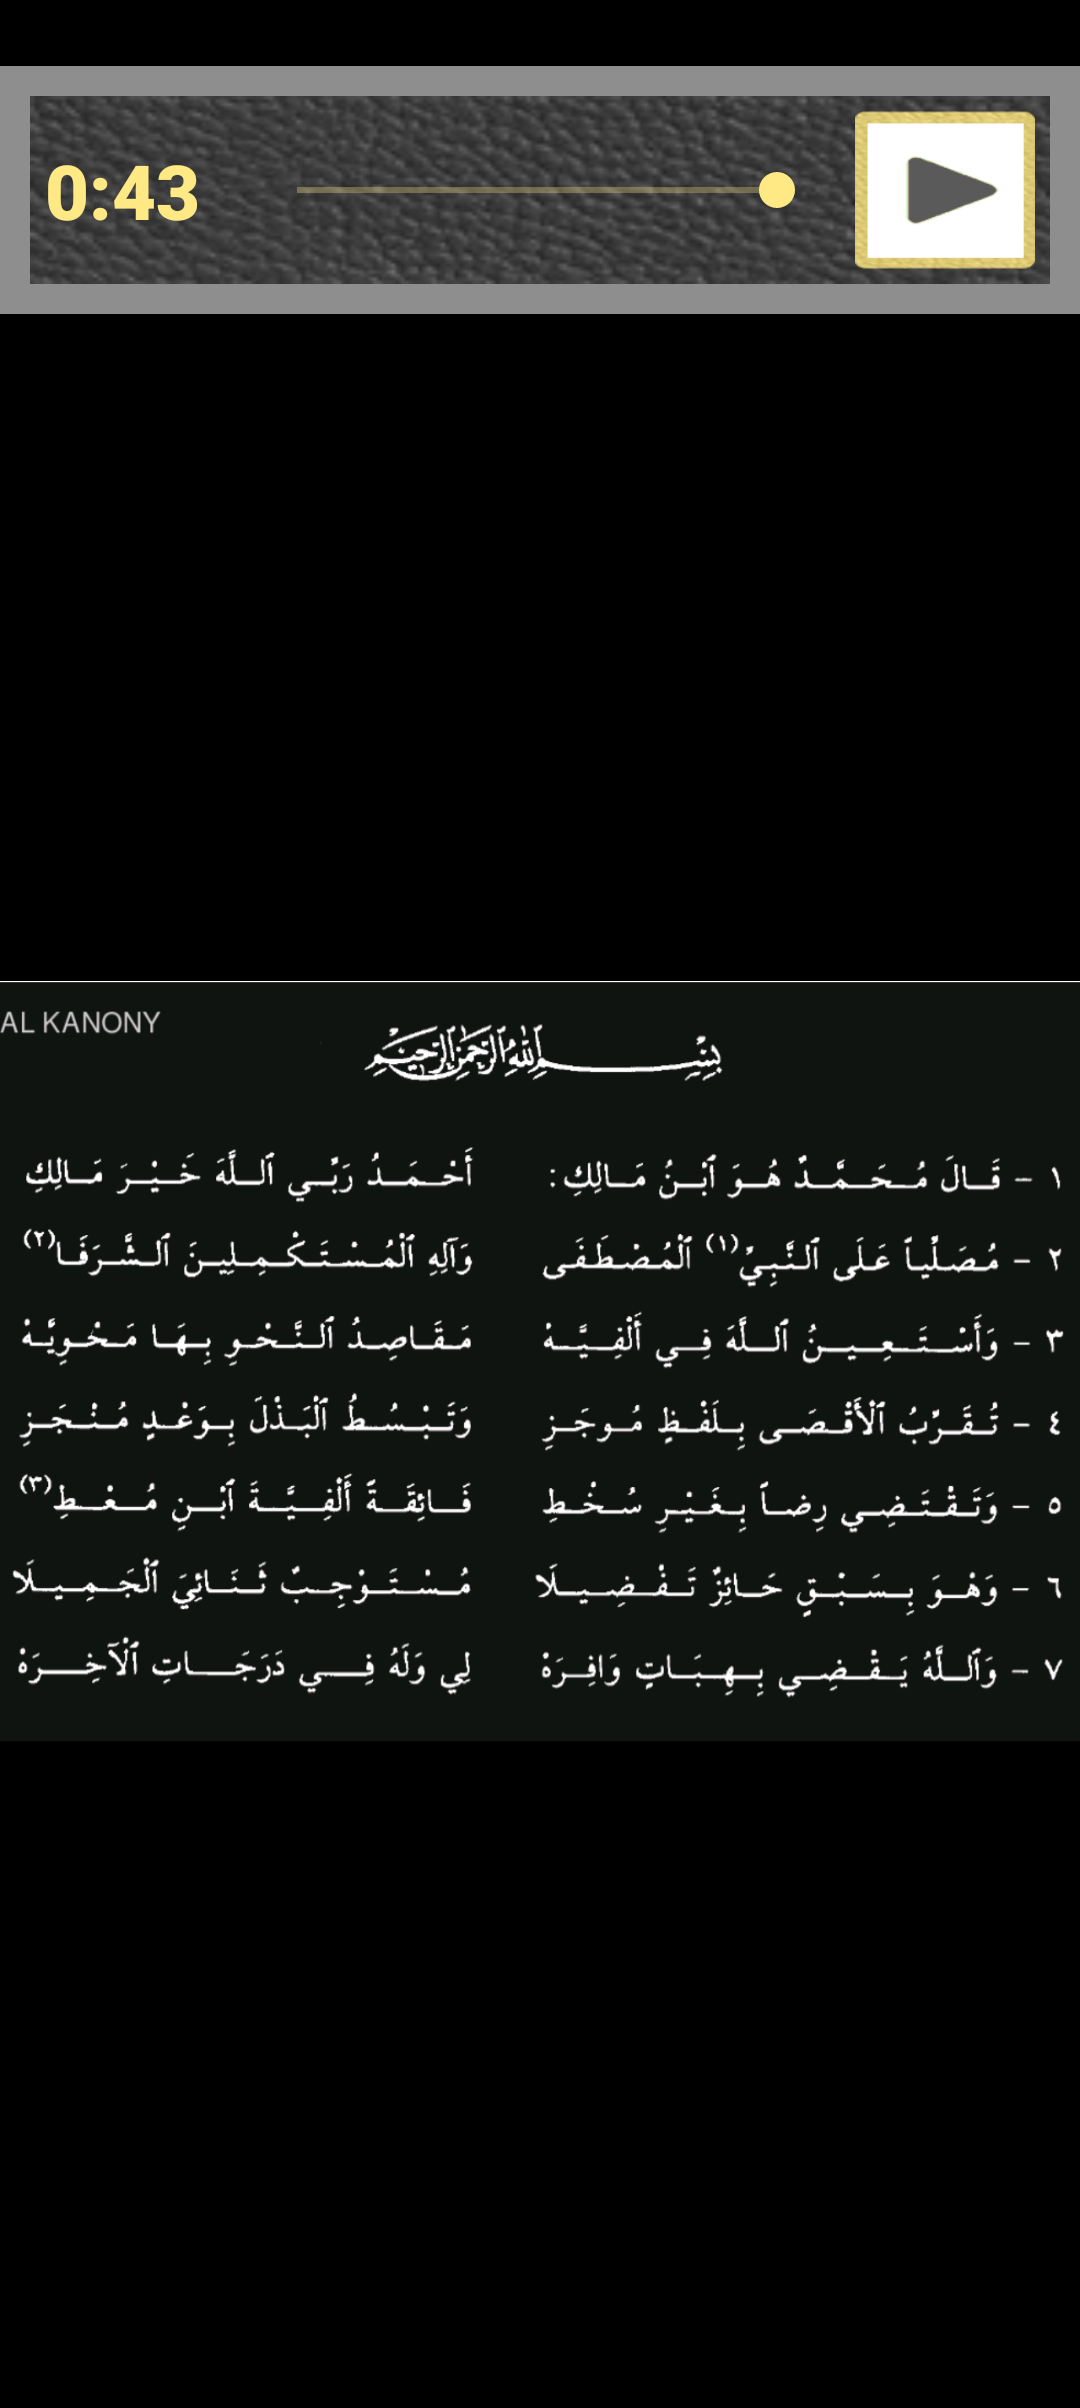 0:43
AL KANONY
بِسْمِ اللَّهِ الرَّحْمَٰنِ الرَّحِيمِ
١ - قَالَ مُحَمَّدٌ هُوَ ٱبْنُ مَالِكِ: أَحْمَدُ رَبِّي ٱللَّهَ خَيْرَ مَالِكِ
٢ - مُصَلِّياً عَلَى ٱلنَّبِيِّ(١) ٱلْمُصْطَفَى وَآلِهِ ٱلْمُسْتَكْمِلِينَ ٱلشَّرَفَا(٢)
٣ - وَأَسْتَعِينُ ٱللَّهَ فِي أَلْفِيَّهْ مَقَاصِدُ ٱلنَّحْوِ بِهَا مَحْوِيَّهْ
٤ - تُقَرِّبُ ٱلْأَقْصَى بِلَفْظٍ مُوجَزِ وَتَبْسُطُ ٱلْبَذْلَ بِوَعْدٍ مُنْجَزِ
٥ - وَتَقْتَضِي رِضاً بِغَيْرِ سُخْطِ فَائِقَةً أَلْفِيَّةَ ٱبْنِ مُعْطِ(٣)
٦ - وَهْوَ بِسَبْقٍ حَائِزٌ تَفْضِيلَا مُسْتَوْجِبٌ ثَنَائِيَ ٱلْجَمِيلَا
٧ - وَٱللَّهُ يَقْضِي بِهِبَاتٍ وَافِرَهْ لِي وَلَهُ فِي دَرَجَاتِ ٱلْآخِرَهْ